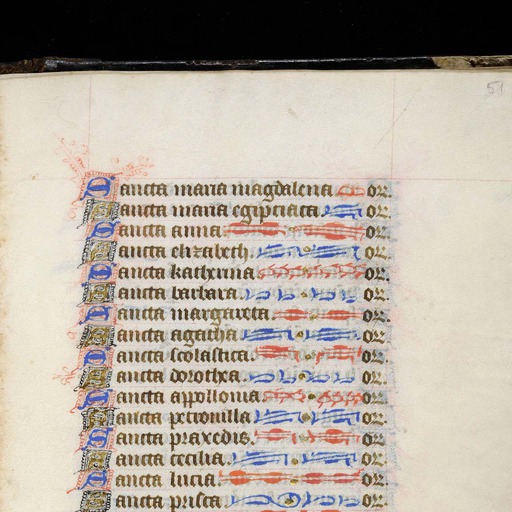 51
Sancta maria magdalena or.
Sancta maria egipciaca or.
Sancta anna or.
Sancta elizabeth or.
Sancta katherina or.
Sancta barbara or.
Sancta margareta or.
Sancta agatha or.
Sancta scolastica or.
Sancta dorothea or.
Sancta appollonia or.
Sancta petronilla or.
Sancta praxedis or.
Sancta cecilia or.
Sancta lucia or.
Sancta prisca or.